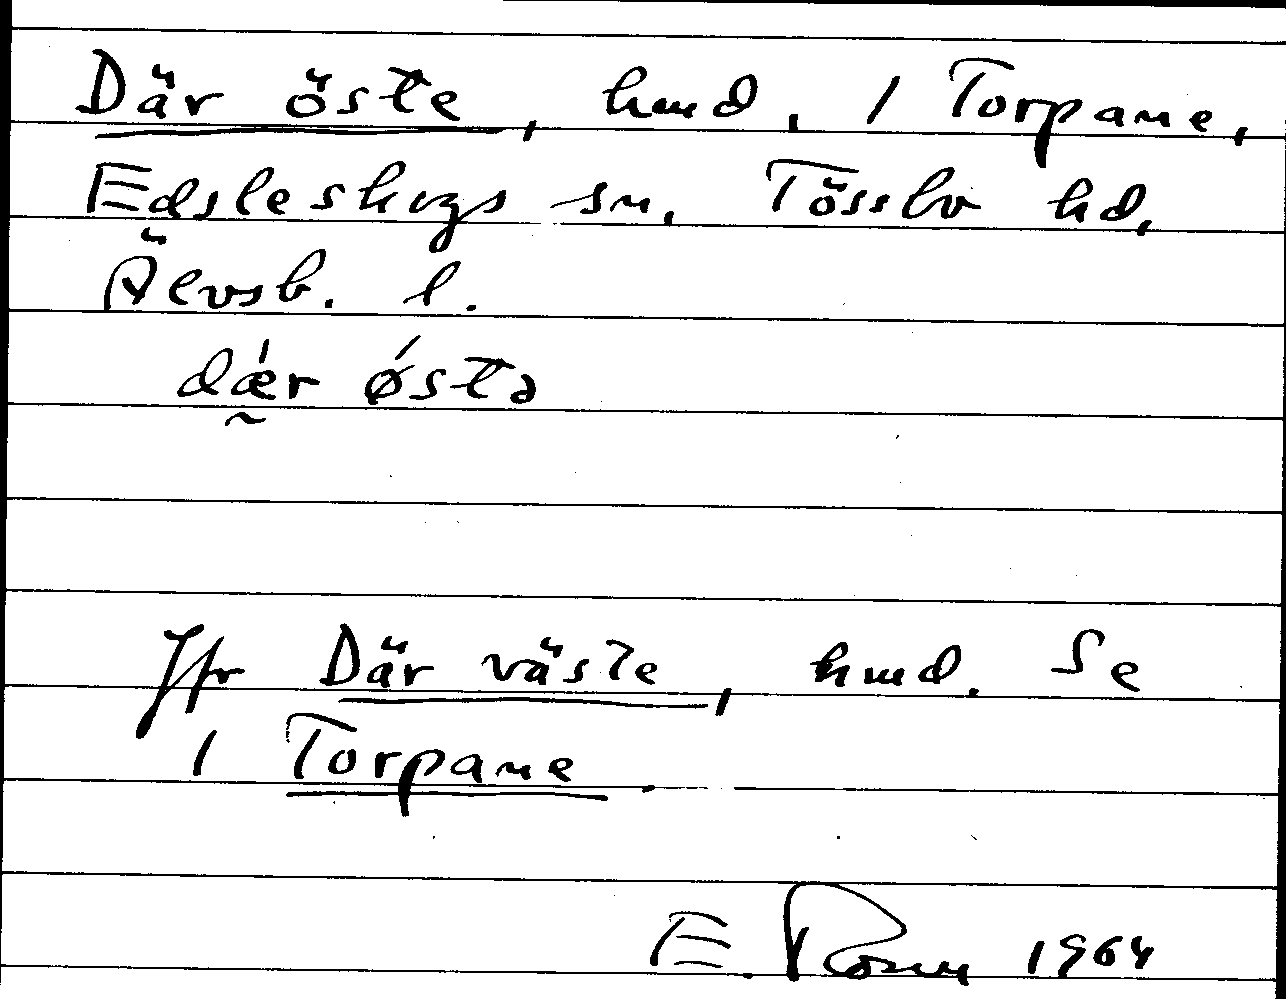 Där öste, hmd, 1 Torpane,
Edsleskogs sn, Tössbo hd,
Älvsb. l.
dǽr ǿstə
Jfr Där väste, hmd. Se
1 Torpane.
E. Rosén 1964